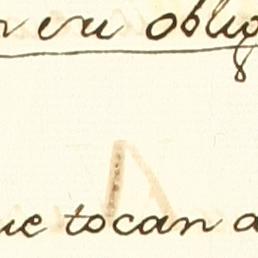 en eu oblig
ue tocan a